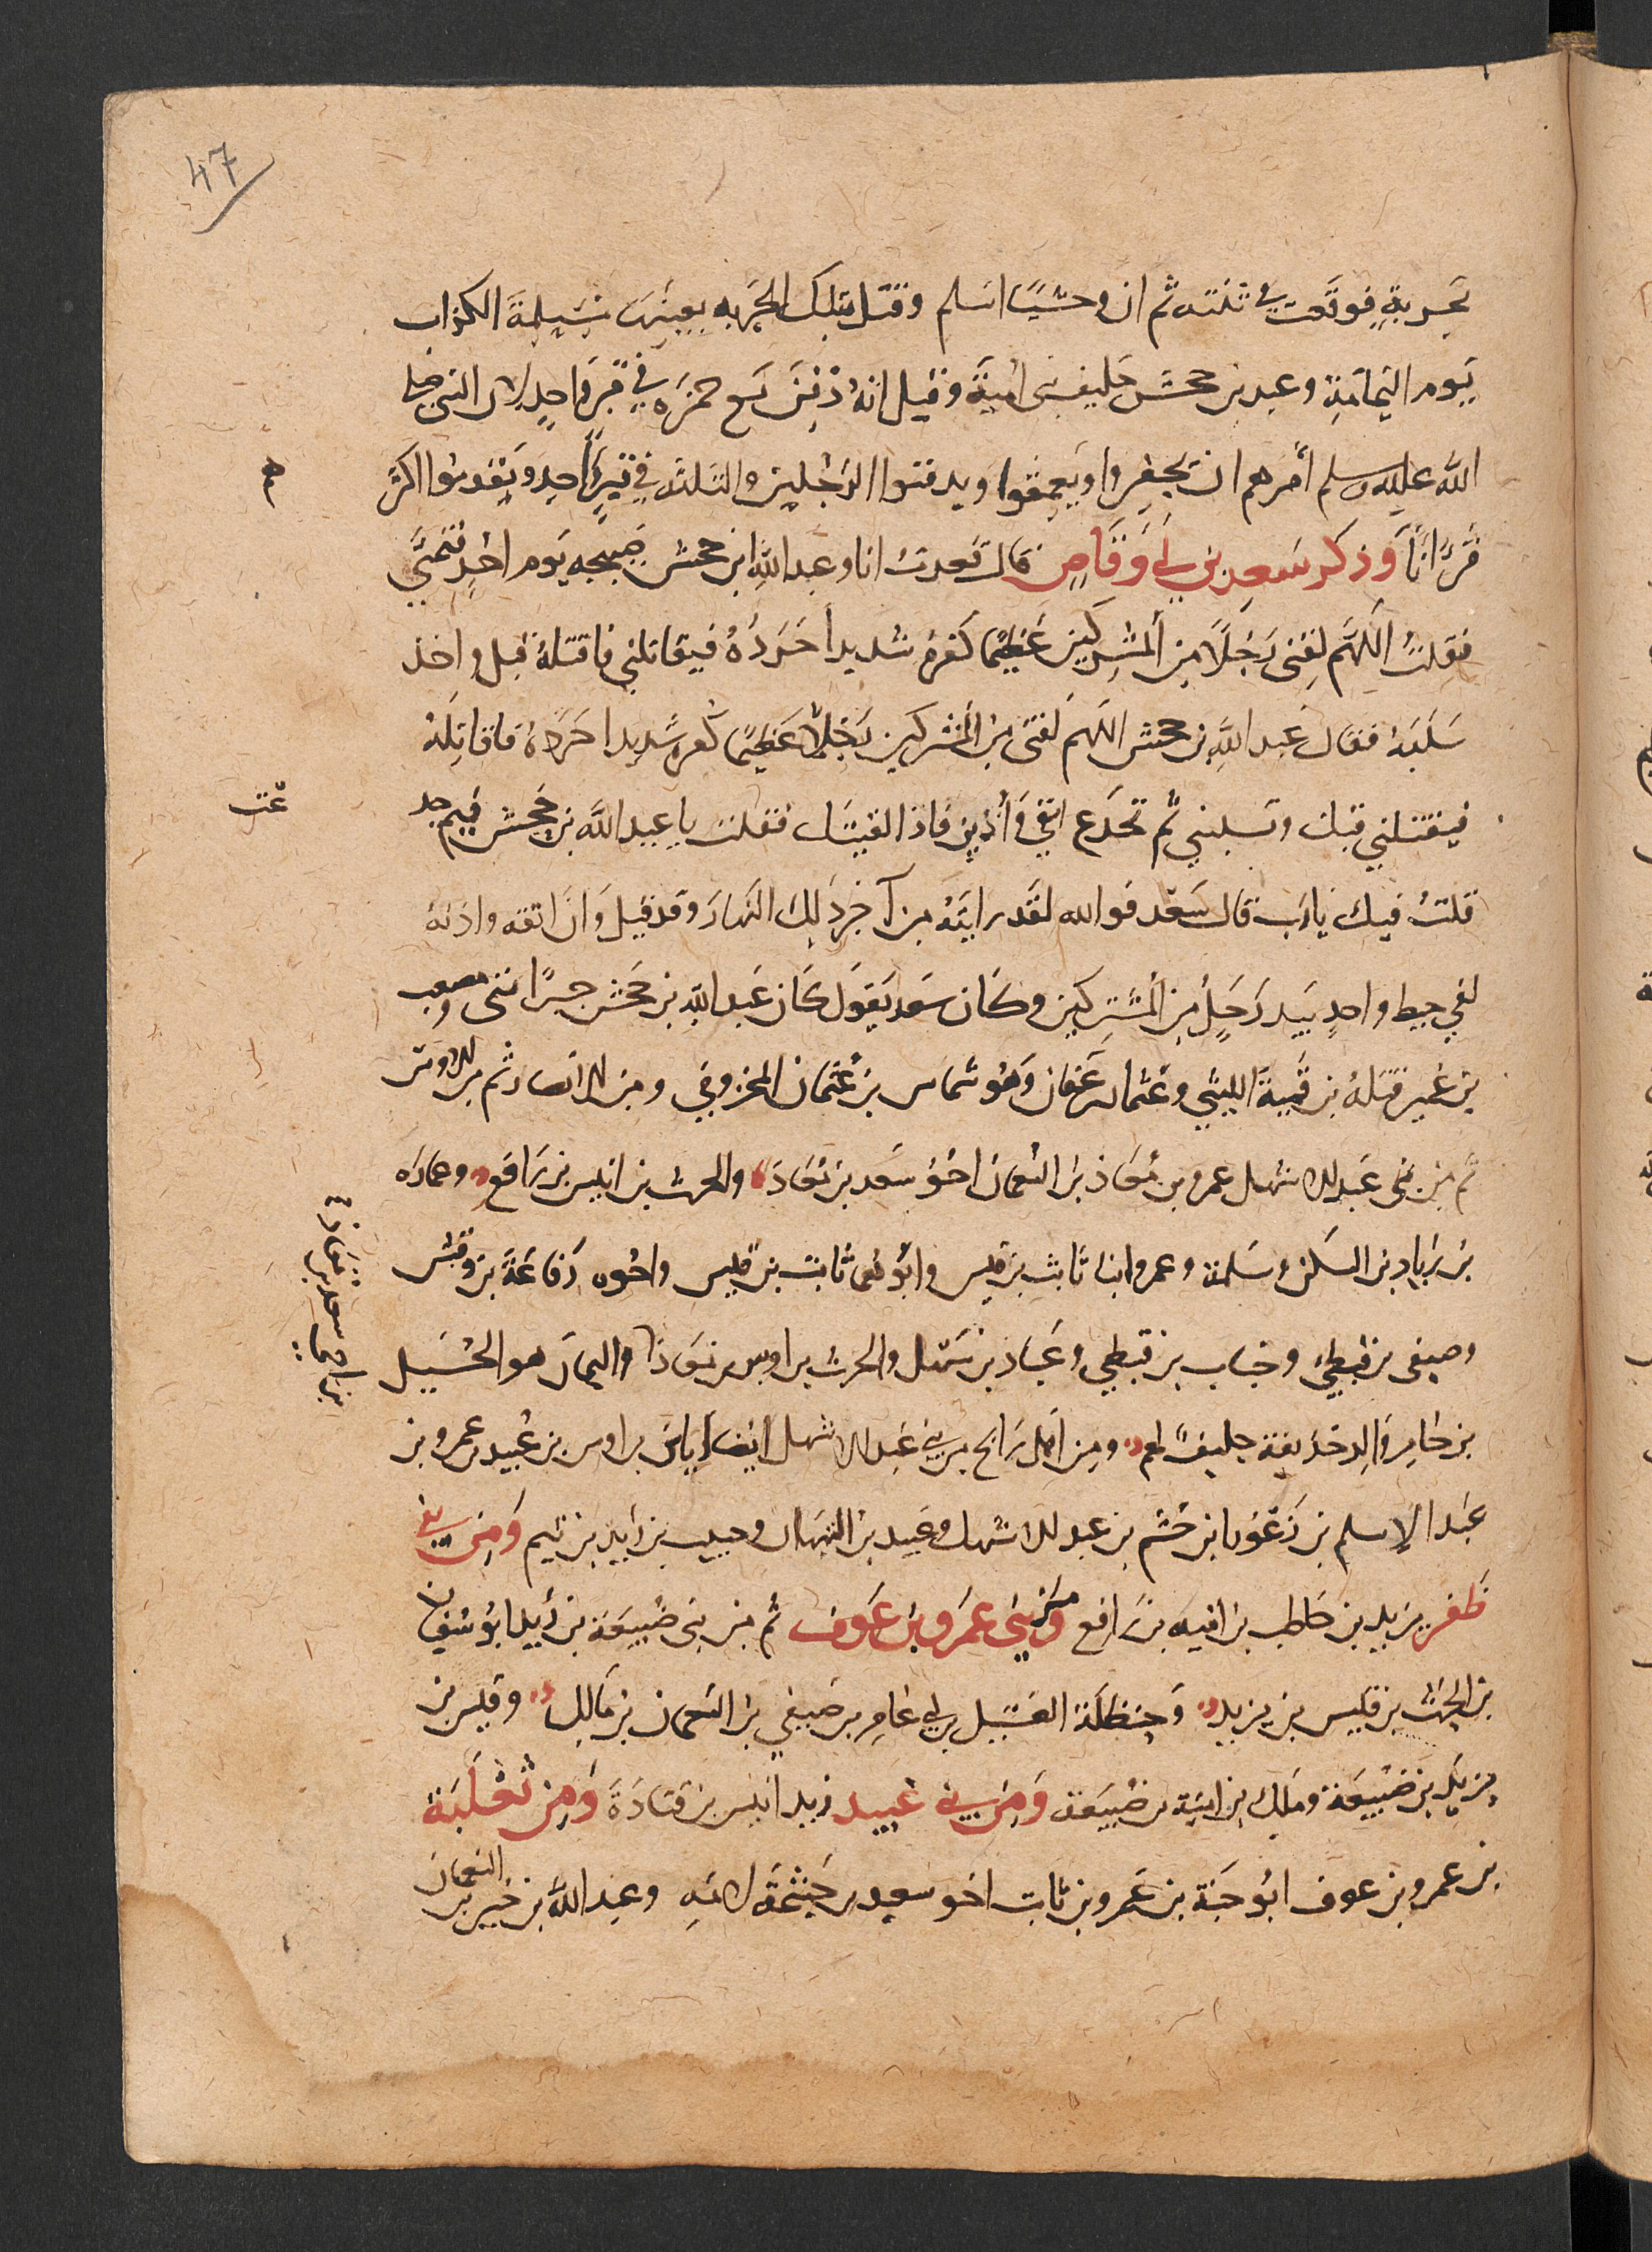 47
بحربةٍ فوقعت في ثنته ثم ان وحشيًا اسلم وقتل بتلك الحربه بعينها مسيلمة الكذاب
يوم اليمامة وعبد بن جحش حليف بنى امية وقيل انه دفن مع حمزه في قبرٍ واحدٍ لان النبي صلى
الله عليه وسلم أمرهم ان يحفروا ويعمقوا ويدفنوا الرجلين والثلثه في قبرٍ واحدٍ ويقدموا اكثر
هم
قراناً وذكر سعد بن ابي وقاص قال قعدت انا وعبد الله ابن جحش صبيحه يوم احدٍ نتمني
فقلت اللهم لقنى رجلاً من المشركين عظيمًا كفره شديداً حرده فيقاتلني فاقتله قبل واخذ
سلبه فقال عبد الله بن جحش اللهم لقنى من المشركين رجلاً عظيمًا كفره شديدا حرده فاقاتله
فيقتلني قبلت وتسلبني ثم تجدع انفي وأذني فاذا لقيتك فقلت يا عبد الله بن جحش فيم جد
عت
قلت فيك يارب قال سعد فوالله لقد رايته من آخر ذلك النهار وقد قتل وان انفه واذنه
لفي خيط واحدٍ بيد رجلٍ من المشركين وكان سعد يقول كان عبد الله بن جحش خيرًا منى ومصعب
بن عمير قتله بن قميئة الليثي وعثمان عفان وهو شماس بن عثمان المخزومي ومن الانصار ثم من الاوس
ثم من بنى عبد الاشهل عمرو بن معاذ بن النعمان اخو سعد بن معاذ والحرث بن انيس بن رافع وعماره
بن زياد بن السكن وسلمة وعمرو ابنا ثابت بن قيس وابوهما ثابت بن قيس واخوه رفاعة بن وقش
وصيفى بن قيظي وخباب بن قيظي وعباد بن سهل والحرث بن اوس بن معاذ واليمان هو الحسيل
بن اخى سعد بن معاذ
بن جابر والد حذيفة حليف لهم ومن اهل راتج من بني عبد الاشهل ايضا اياس بن اوس بن عتيك بن عمرو بن
عبد الاسلم بن زعورا بن جشم بن عبد الاشهل وعبيد بن التيهان وحبيب بن زيد بن تيم ومن بني
ظفر يزيد بن حاطب بن اميه بن رافع ومن بنى عمرو بن عوف ثم من بنى ضبيعة بن زيد ابو سفيان
بن الحرث بن قيس بن يزيد وحنظلة الغسيل بن ابي عامر بن صيفي بن النعمان بن مالك وقيس بن
يزيد بن ضبيعة ومالك بن امية بن ضبيعة ومن بني عبيد زيد انيس بن قتادة ومن ثعلبة
بن عمرو بن عوف ابو حبة بن عمرو بن ثابت اخو سعد بن خيثمة لامه وعبد الله بن جبير بن النعمان